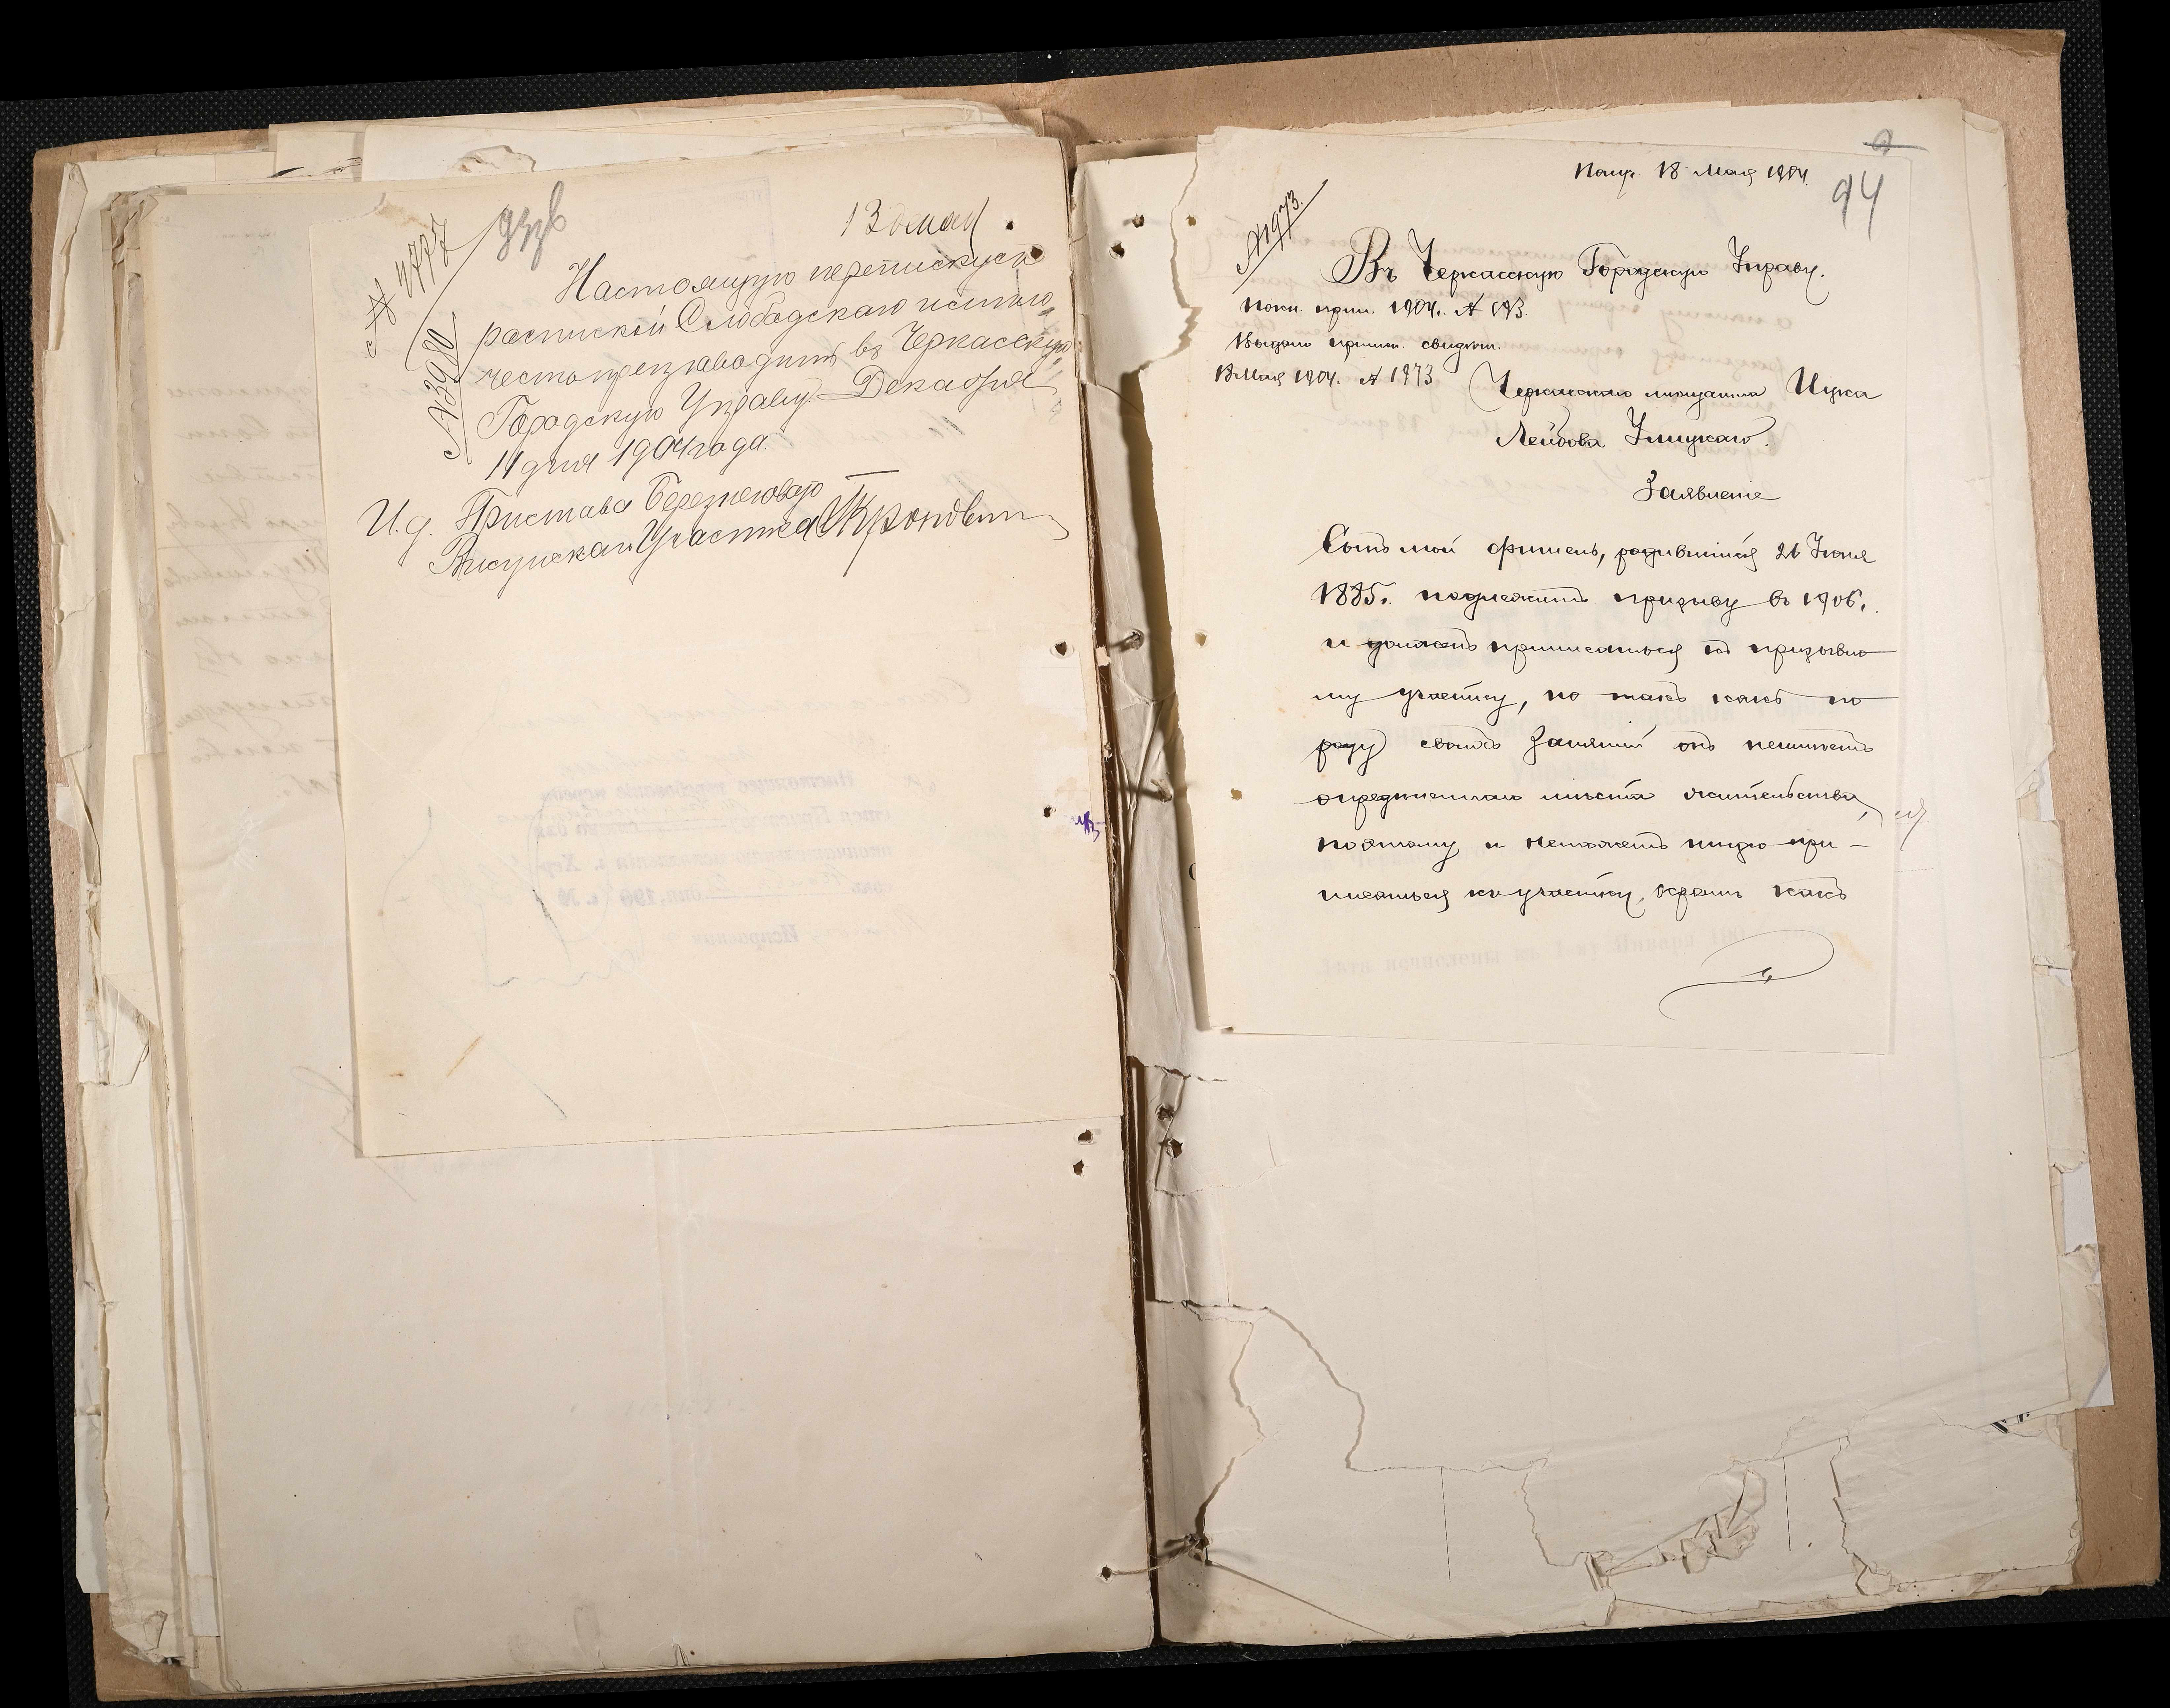 № 4777
№ 3980
Настоящую переписку съ
роспиской Слободскаго
въ Черкасскую
Городскую Управу. Декабря
11 дня 1904 года.
И. д. Пристава Березнеговато
Висунскаго Участка
Получ. 18 Мая 1904.
94
№ 1973.
Въ Черкасскую Городскую Управу.
1904 г. № 193.
Выдано припис. свидѣт.
18 Мая 1904 г. № 1973
Черкасскаго мѣщанина Ицка
Лейбова
Заявленіе
Сынъ мой Фишель, родившійся 26 Іюня
1885 г. подлежитъ призыву въ 1906 г.
и долженъ приписаться къ призывно
му участку, но такъ какъ по
роду своихъ занятій онъ неимѣетъ
опредѣленнаго мѣста жительства,
поэтому и неможетъ при-
писаться къ участку, кромѣ какъ